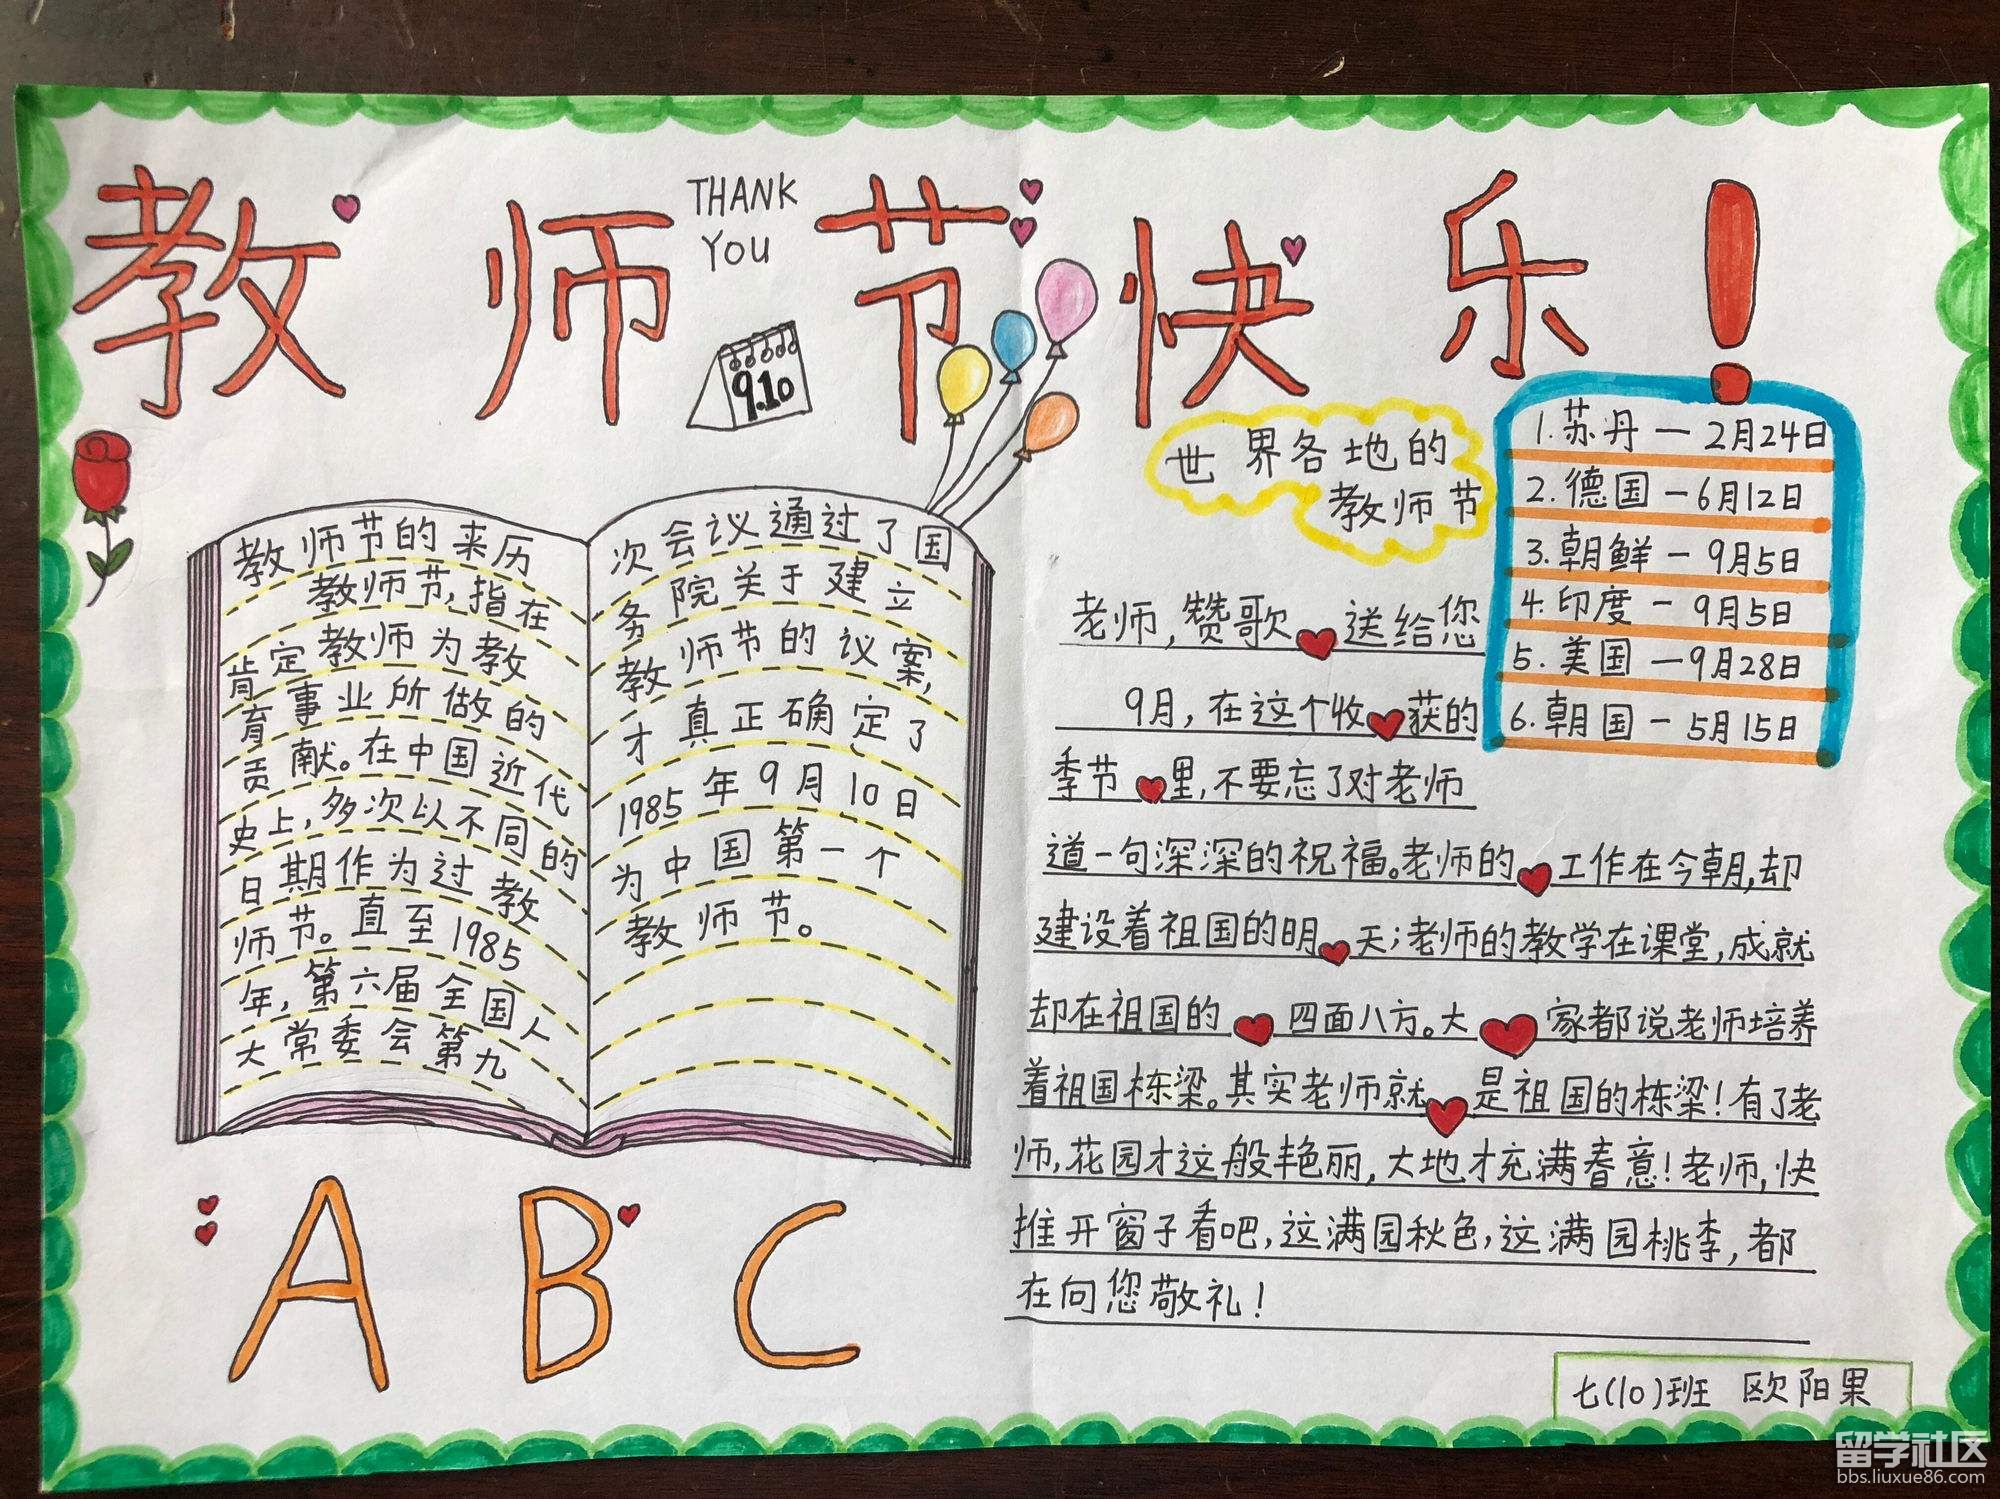 教师节快乐！
THANK
YOU
9.10
教师节的来历
教师节,指在
肯定教师为教
育事业所做的
贡献。在中国近代
史上,多次以不同的
日期作为过教
师节。直至1985
年,第六届全国人
大常委会第九
次会议通过了国
务院关于建立
教师节的议案,
才真正确定了
1985年9月10日
为中国第一个
教师节。
世界各地的
教师节
1.苏丹—2月24日
2.德国—6月12日
3.朝鲜—9月5日
4.印度—9月5日
5.美国—9月28日
6.朝国—5月15日
老师,赞歌送给您
9月,在这个收获的
季节里,不要忘了对老师
道一句深深的祝福。老师的工作在今朝,却
建设着祖国的明天;老师的教学在课堂,成就
却在祖国的四面八方。大家都说老师培养
着祖国栋梁。其实老师就是祖国的栋梁!有了老
师,花园才这般艳丽,大地才充满春意!老师,快
推开窗子看吧,这满园秋色,这满园桃李,都
在向您敬礼!
ABC
七(10)班 欧阳果
留学社区
bbs.liuxue86.com